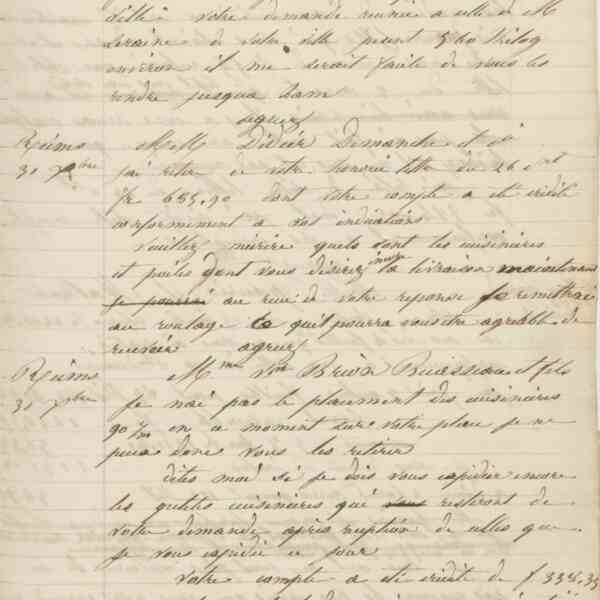 votre demande réunie a celle de M
de votre ville pesant 560 kilog
environ il me serait facile de vous les
rendre jusqua
agreez
Reims
31 7bre
M M Didier Demanche et
j'ai retiré de votre honorée lettre du 26 ct
fr 655,90 dont votre compte a été crédité
conformément a vos indications
Veuillez mécrire quels sont les cuisinières
et poêles dont vous désirez la livraison maintenant
je pourrai au reçu de votre reponse je remettrai
au roulage ce qu'il pourra vous être agréable de
recevoir agreez
Reims
31 7bre
Mme Vve Brion et fils
Je nai pas le placement des cuisinières
90 en ce moment sur votre place je ne
puis donc vous les retirer
dites moi si je dois vous expédier encore
les petites cuisinières qui vous resteront de
votre demande après reception de celles que
je vous expédie ce jour
Votre compte a été crédité de f 338,35